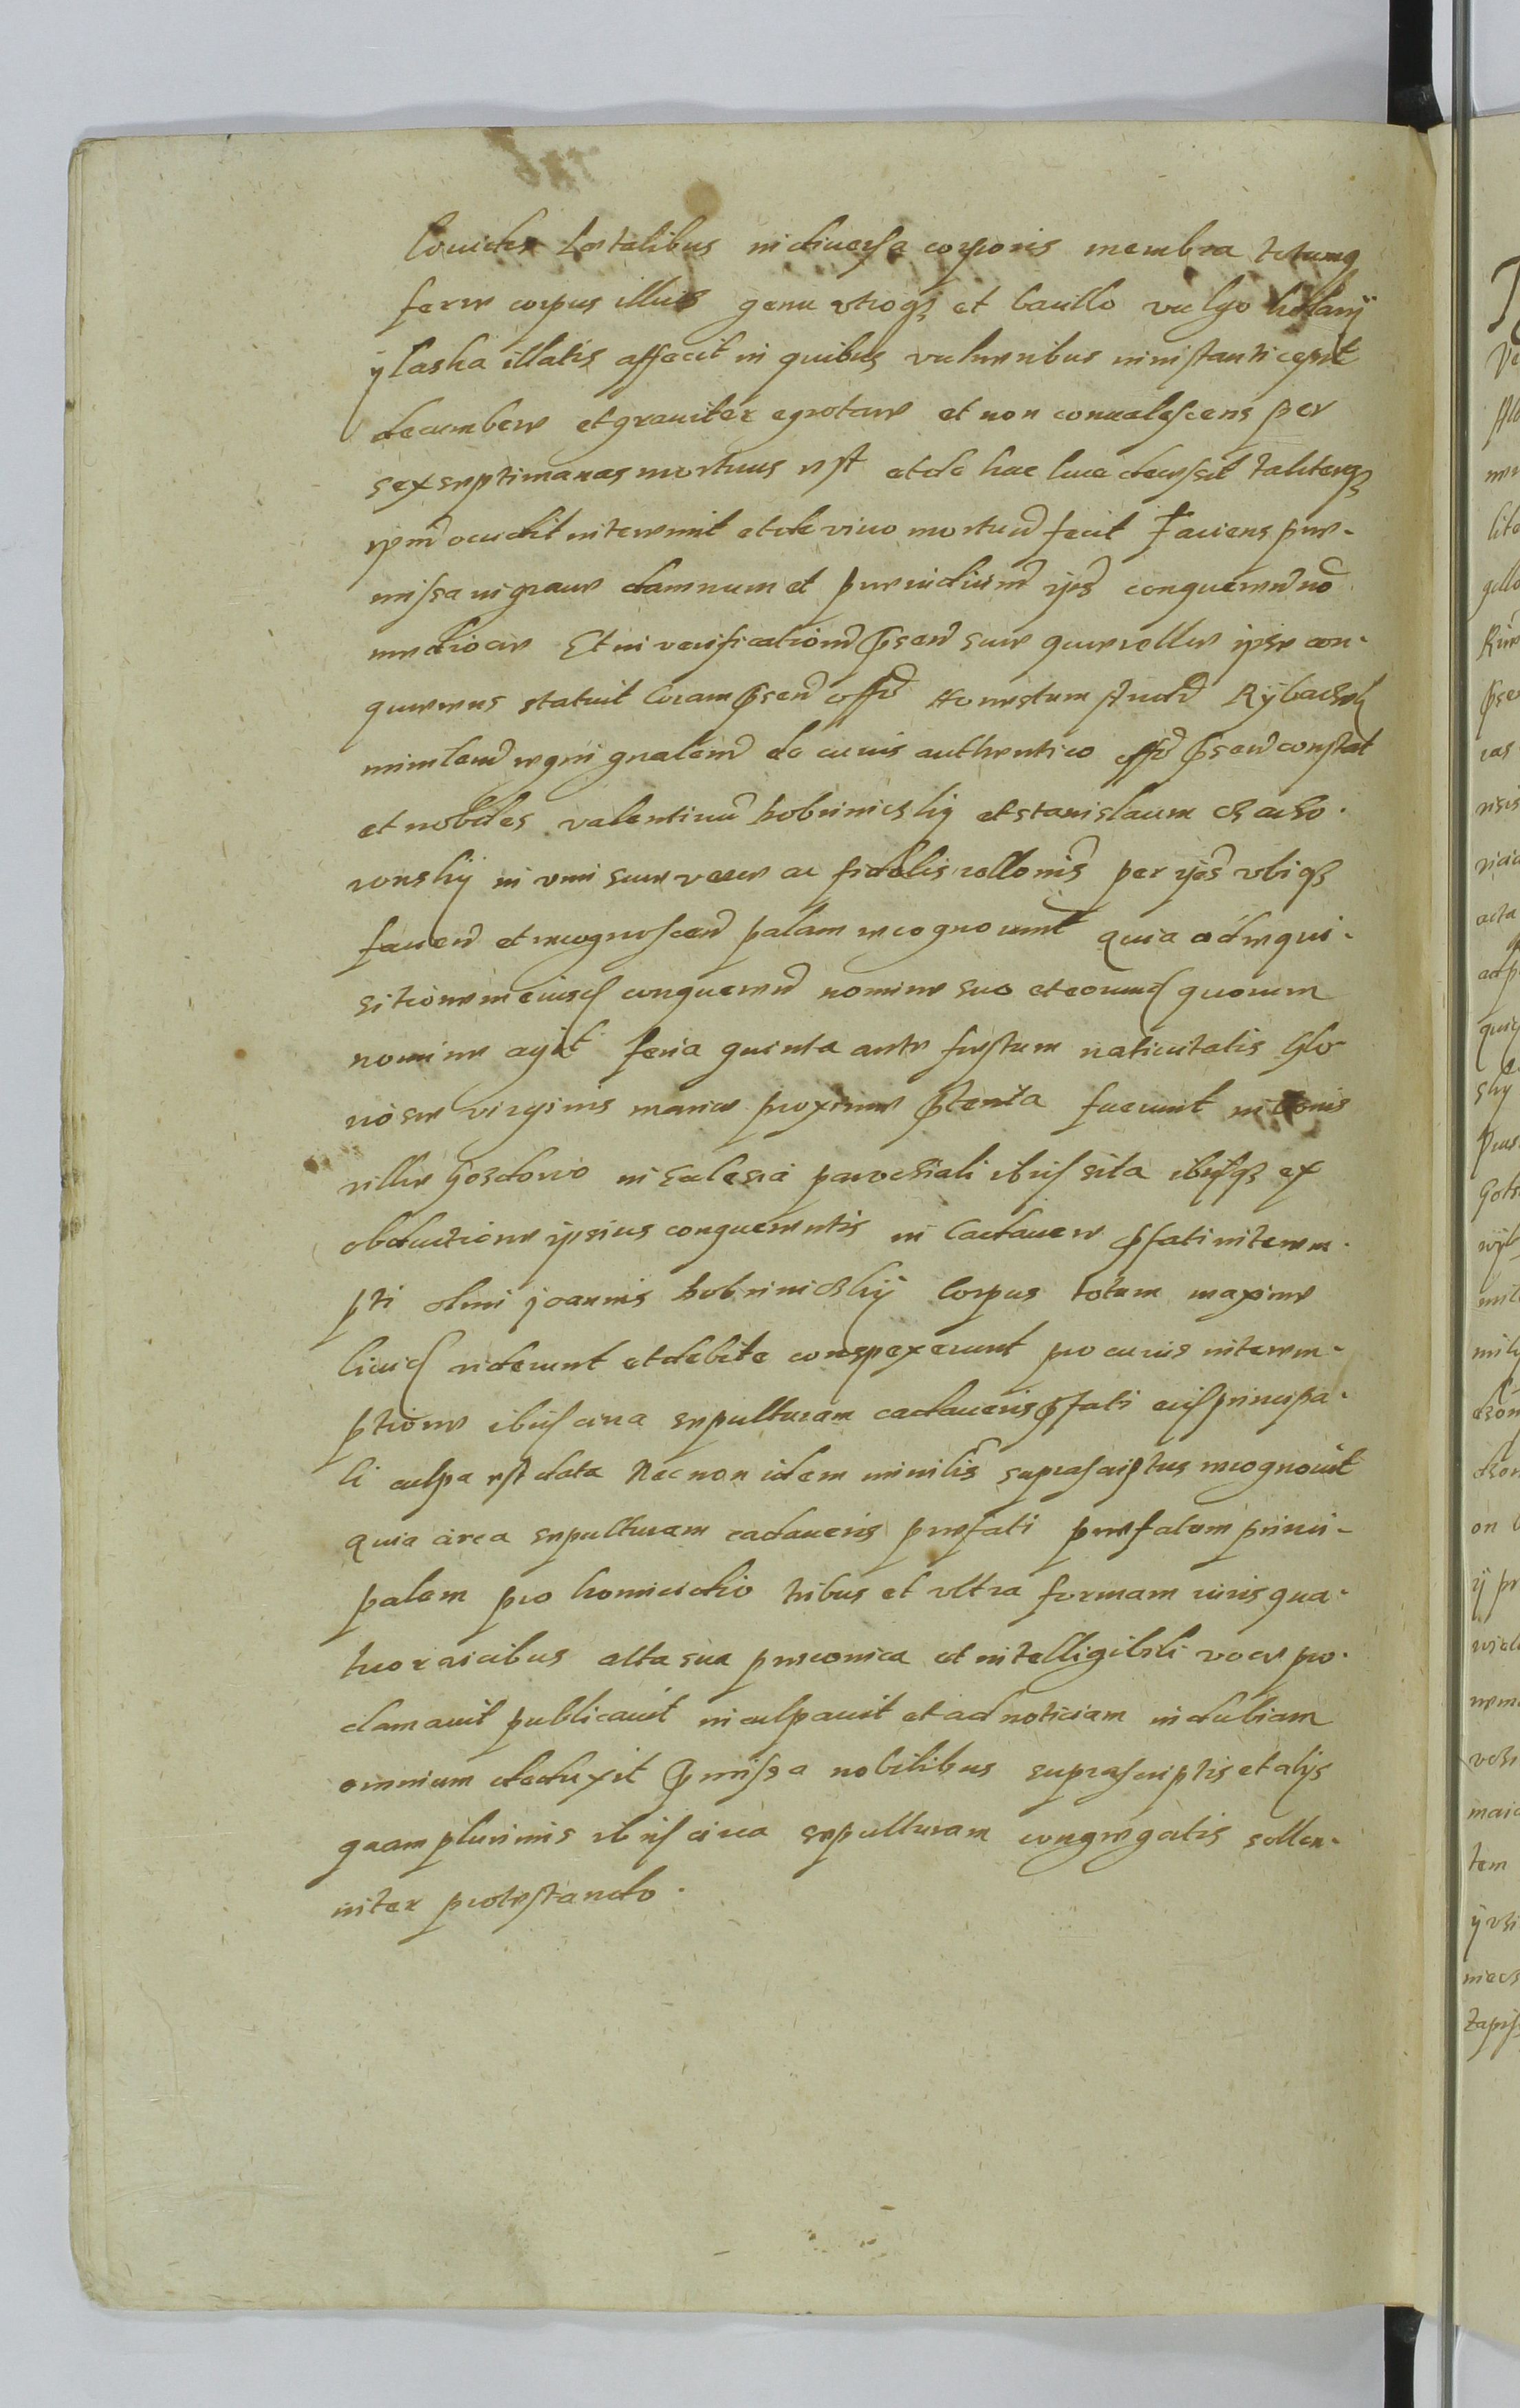 liuides letalibus in diuersa corporis membra totumq
ferre corpus illius genu vtroq3 et bacillo vulgo kolanij
ylaska illatis affecit in quibus vulneribus in instanti cepit
decumbere et grauiter egrotare et non conualescens per
sex septimanas mortuus est et de hac luce decessit taliterq3
ipm̄ occidit interemit et de viuo mortuū fecit Faciens pre-
missa in graue damnum et preiudiciū ips̄ conqueren̄ nō
mediocre Et in verificationē p̄sen̄ sue querelle ipse con-
querens statuit Coram p̄sen̄ offō Honestum prudē Rybaczek
ministeriū regni gnalem̄ de cuius authentico offō p̄sen̄ constat
et nobiles valentinū kobrinicskij et stanislaum
ronskij in vim sue vere ac fidelis rellonis̄ per ips̄ vbiq3
facien̄ et recognoscen̄ palam recognouerunt quia ad requi-
sitionem eiusd conqueren̄ nomine suo et eorumd quorum
nomine agit feria quinta ante festum natiuitatis Glo-
riose virginis marie proxime p̄terita fuerunt in bonis
ville Gozdowo in Ecclesia parochiali ibi sita ibiq3 ex
obductione ipsius conquerentis in Cadauere p̄fati interem-
pti olim joannis kobrinickij Corpus totum maxime
liuid viderunt et debite conspexerunt pro cuius interem-
ptione ibi circa sepulturam cadaueris p̄fati eius principa-
li culpa est data Nec non idem minilis̄ suprascriptus recognouit
quia circa sepulturam cadaueris prefati prefatum princi-
palem pro homicidio tribus et vltra formam iuris qua-
tuor vicibus alta sua preconica et intelligibili voce pro-
clamauit publicauit inculpauit et ad noticiam indubiam
omnium deduxit p̄missa nobilibus suprascriptis et alijs
quam plurimis ibi circa sepulturam congregatis sollen-
niter protestando.